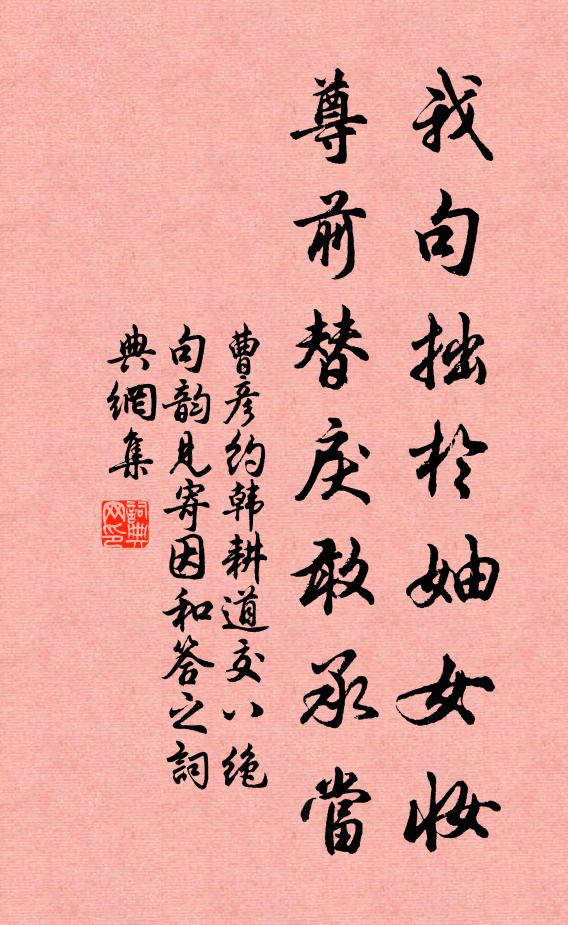 我句拙於妯女妆
尊前替戾敢承當
曹彦约韩耕道交八绝
句韵见寄因和答之詞
典網集
詞典
网印